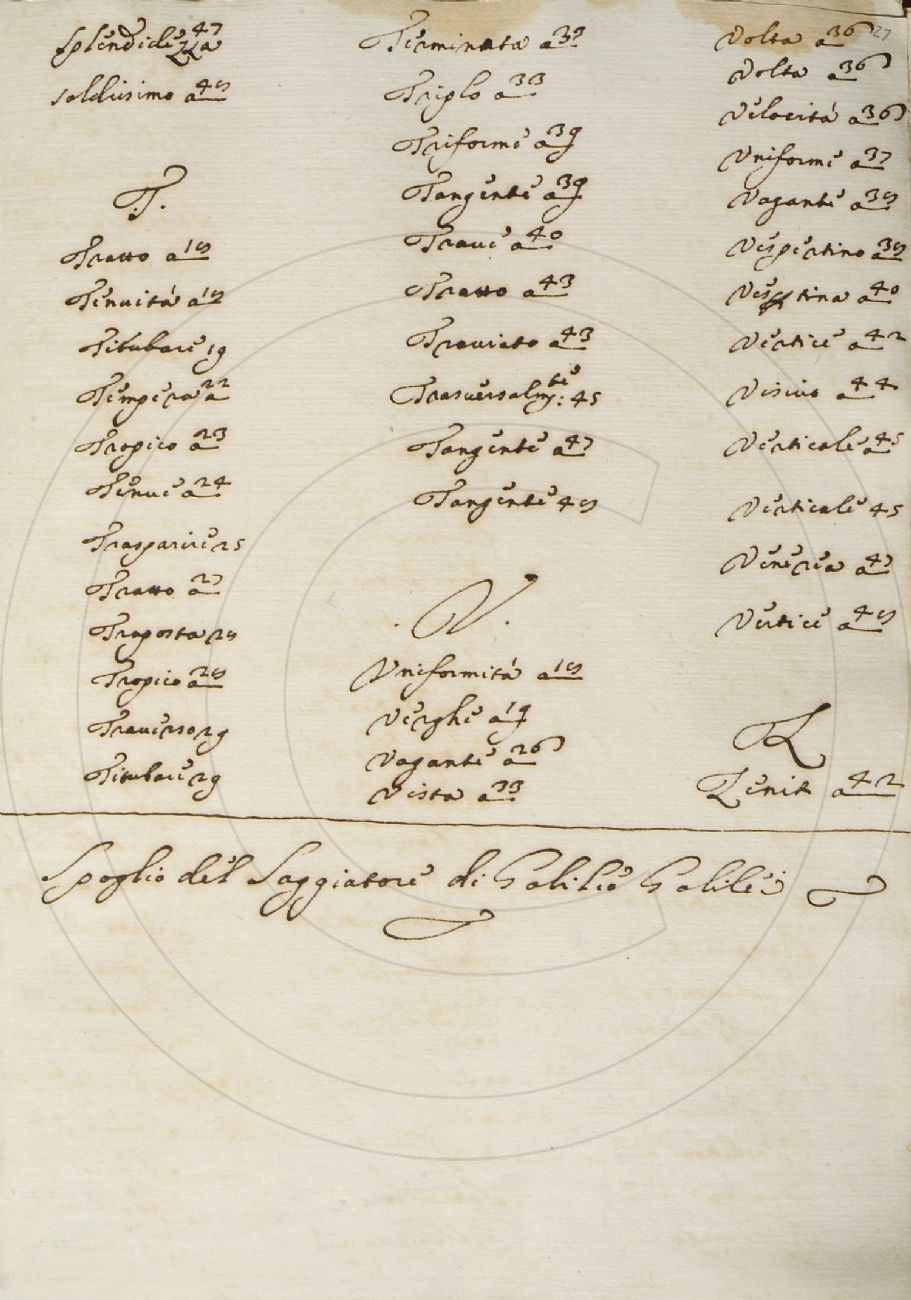 Splendidezza 47
soldisimo a 49
T.
Tratto a 19
Tenuità a 19
Titubare 19
Tempera a 22
Tropico a 23
Tenue a 24
Trasparire 25
Tratto a 27
Traposta 29
Tropico a 29
Traverso 29
Titubare 29
Terminata a 32
Triplo a 33
Triforme a 39
Tangente a 39
Trave a 40
Tratto a 43
Traviato a 43
Trasversalmte: 45
Tangente a 47
Tangente 49
.V.
Uniformità a 19
Verghe a 19
Vagante a 26
Vista a 33
Volta a 36
27
Volta a 36
Velocità a 36
Uniforme a 37
Vagante a 39
Vespertino a 39
Vespertina a 40
Vertice a 42
Visivo a 44
Verticale a 45
Verticale 45
Venerea a 47
Vertice a 49
Z
Zenit a 42
Spoglio del Saggiatore di Galileo Galilei